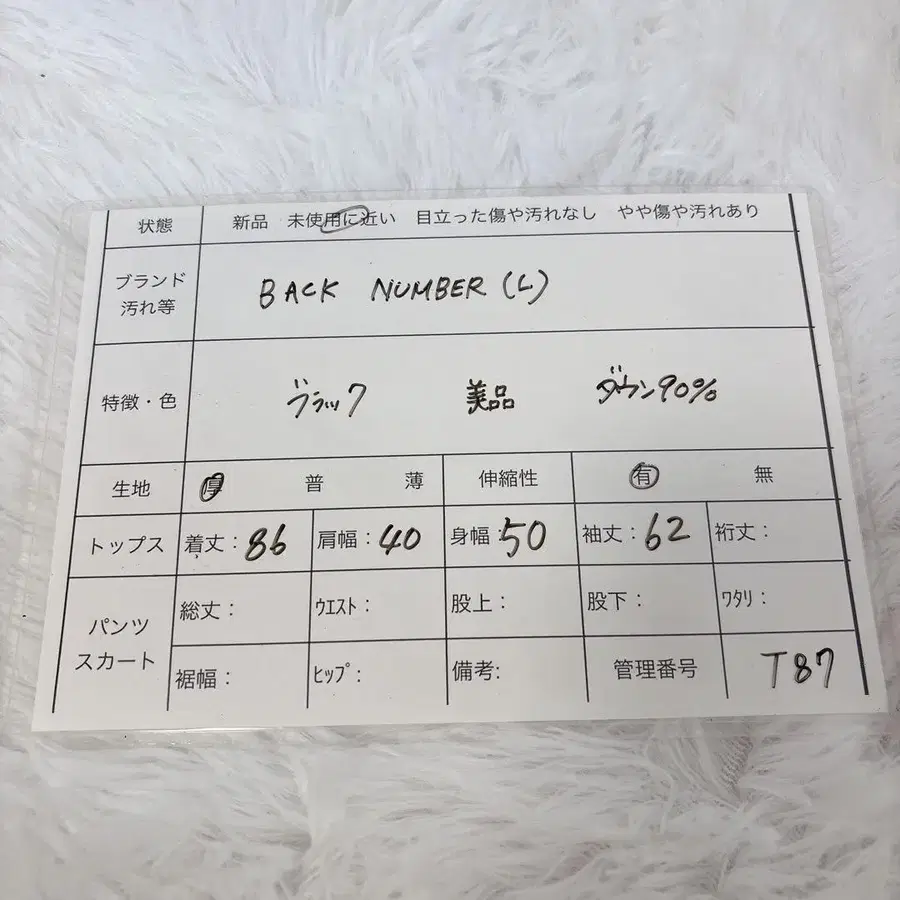 状態 新品 未使用に近い 目立った傷や汚れなし やや傷や汚れあり
ブランド
汚れ等
BACK NUMBER (L)
特徴・色 ブラック 美品 ダウン90%
生地 厚 普 薄 伸縮性 有 無
トップス 着丈：86 肩幅：40 身幅：50 袖丈：62 裄丈：
パンツ
スカート
総丈： ウエスト： 股上： 股下： ワタリ：
裾幅： ヒップ： 備考: 管理番号 T87